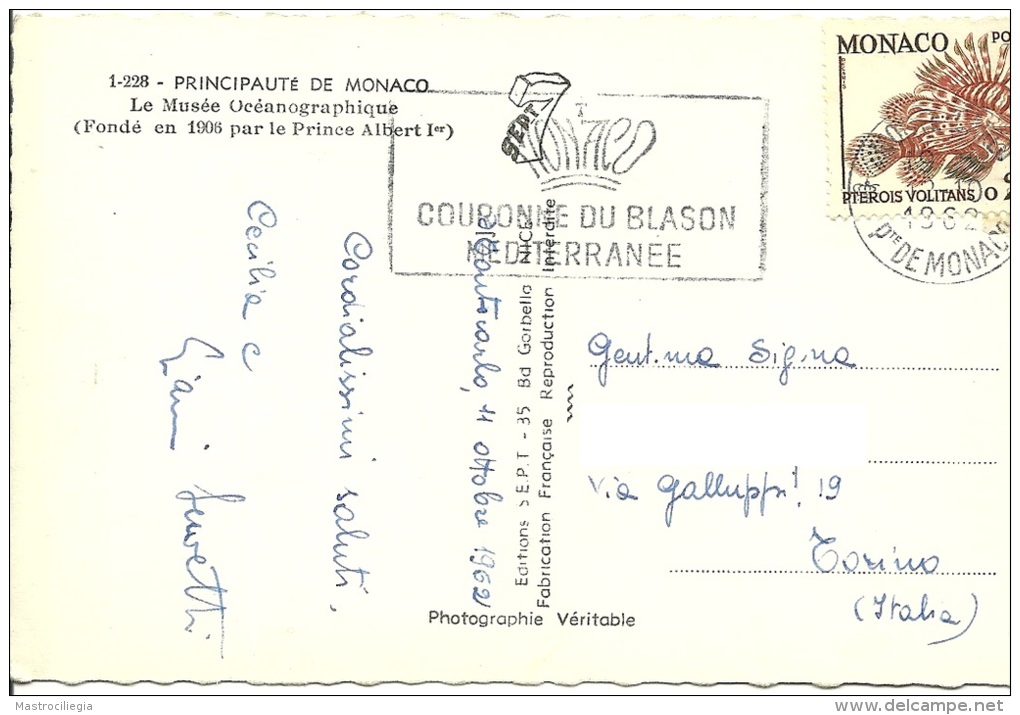 1-228 - PRINCIPAUTÉ DE MONACO
Le Musée Océanographique
(Fondé en 1906 par le Prince Albert Ier)
SEPT
MONACO
COURONNE DU BLASON
MEDITERRANEE
MONACO
PTEROIS VOLITANS
1962
PTE DE MONACO
Montecarlo, 11 ottobre 1962
Cordialissimi saluti,
Cecilia e
Gianni
Editions S.E.P.T - 35 Bd Gorbella NICE
Fabrication Française Reproduction Interdite
Gent.ma Sig.na
Via Galluppi, 19
Torino
(Italia)
Photographie Véritable
Mastrociliegia
delcampe.net